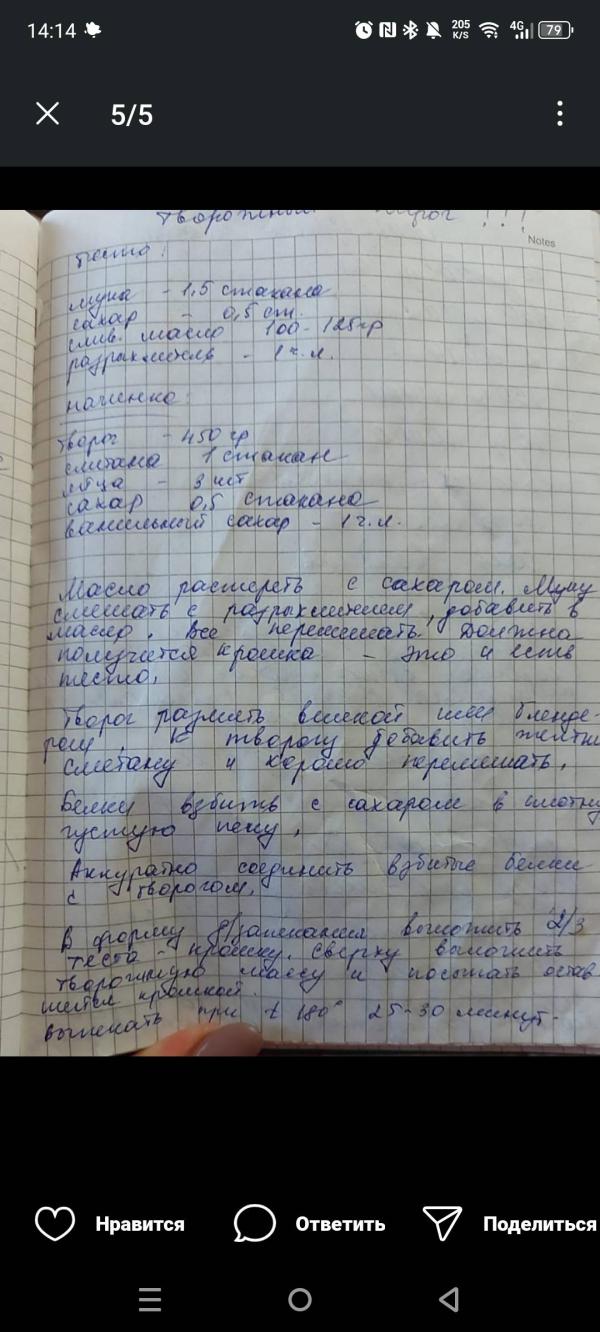 14:14
205
K/S
4G
79
5/5
Творожный пирог !!!
Notes
Тесто:
мука - 1,5 стакана
сахар - 0,5 ст.
слив. масло 100-125 гр
разрыхлитель - 1 ч.л.
начинка:
творог - 450 гр
сметана 1 стакан
яйца - 3 шт
сахар 0,5 стакана
ванильный сахар - 1 ч.л.
Масло растереть с сахаром. Муку
смешать с разрыхлителем, добавить в
масло. Все перемешать. Должна
получится крошка - это и есть
тесто.
Творог размять вилкой или бленде-
ром, к творогу добавить желтки
сметану и хорошо перемешать.
Белки взбить с сахаром в плотну
густую пену.
Аккуратно соединить взбитые белки
с творогом.
В форму д/запекания выложить 2/3
теста - крошки. Сверху выложить
творожную массу и посыпать остав
шейся крошкой.
Выпекать при t 180° 25-30 минут.
Нравится
Ответить
Поделиться